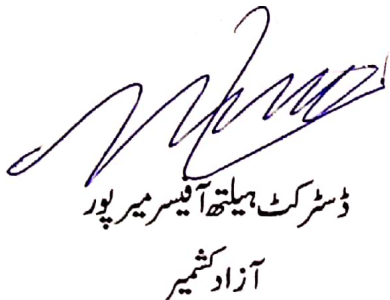 ڈسٹرکٹ ہیلتھ آفیسر میرپور
آزاد کشمیر